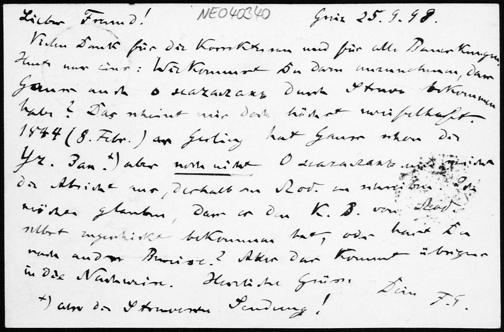 Lieber Freund! NE040340 Graz 25.9.98.
Vielen Dank für die Korrekturen und für alle Bemerkungen.
Heute nur eine: Wie kommst Du dazu anzunehmen, dass
Gauss auch durch Struve bekommen
habe? Das scheint mir doch höchst zweifelhaft.
1844 (8. Febr.) an Gerling hat Gauss schon die
Jan. +) aber noch nicht
die Absicht nur, deshalb an zu schreiben. Ich
möchte glauben, dass er den K. B. von
selbst zugeschickt bekommen hat, oder hast Du
noch andre Beweise? Aber das kommt übrigens
in die Nachweise. Herzliche Grüsse Dein
+) also die Struvesche Sendung!